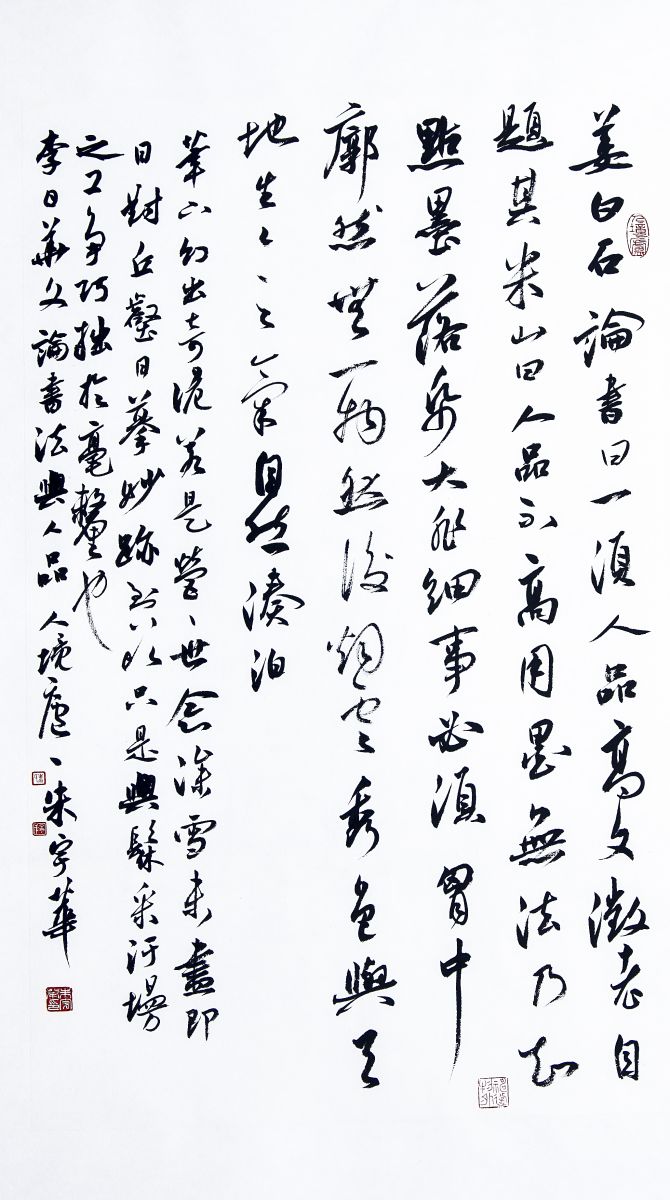 姜白石論書曰一須人品高文徵老自
題其米山曰人品不高用墨無法乃知
點墨落紙大非細事必須胷中
廓然無一物然後煙雲秀色與天
地生々之氣自然湊泊
筆下幻出奇詭若是營々世念澡雪未盡即
日對丘壑日摹妙跡到頭只是與髹采圬墁
之工爭巧拙於毫釐也
李日華文論書法與人品 人境廬 朱宇華